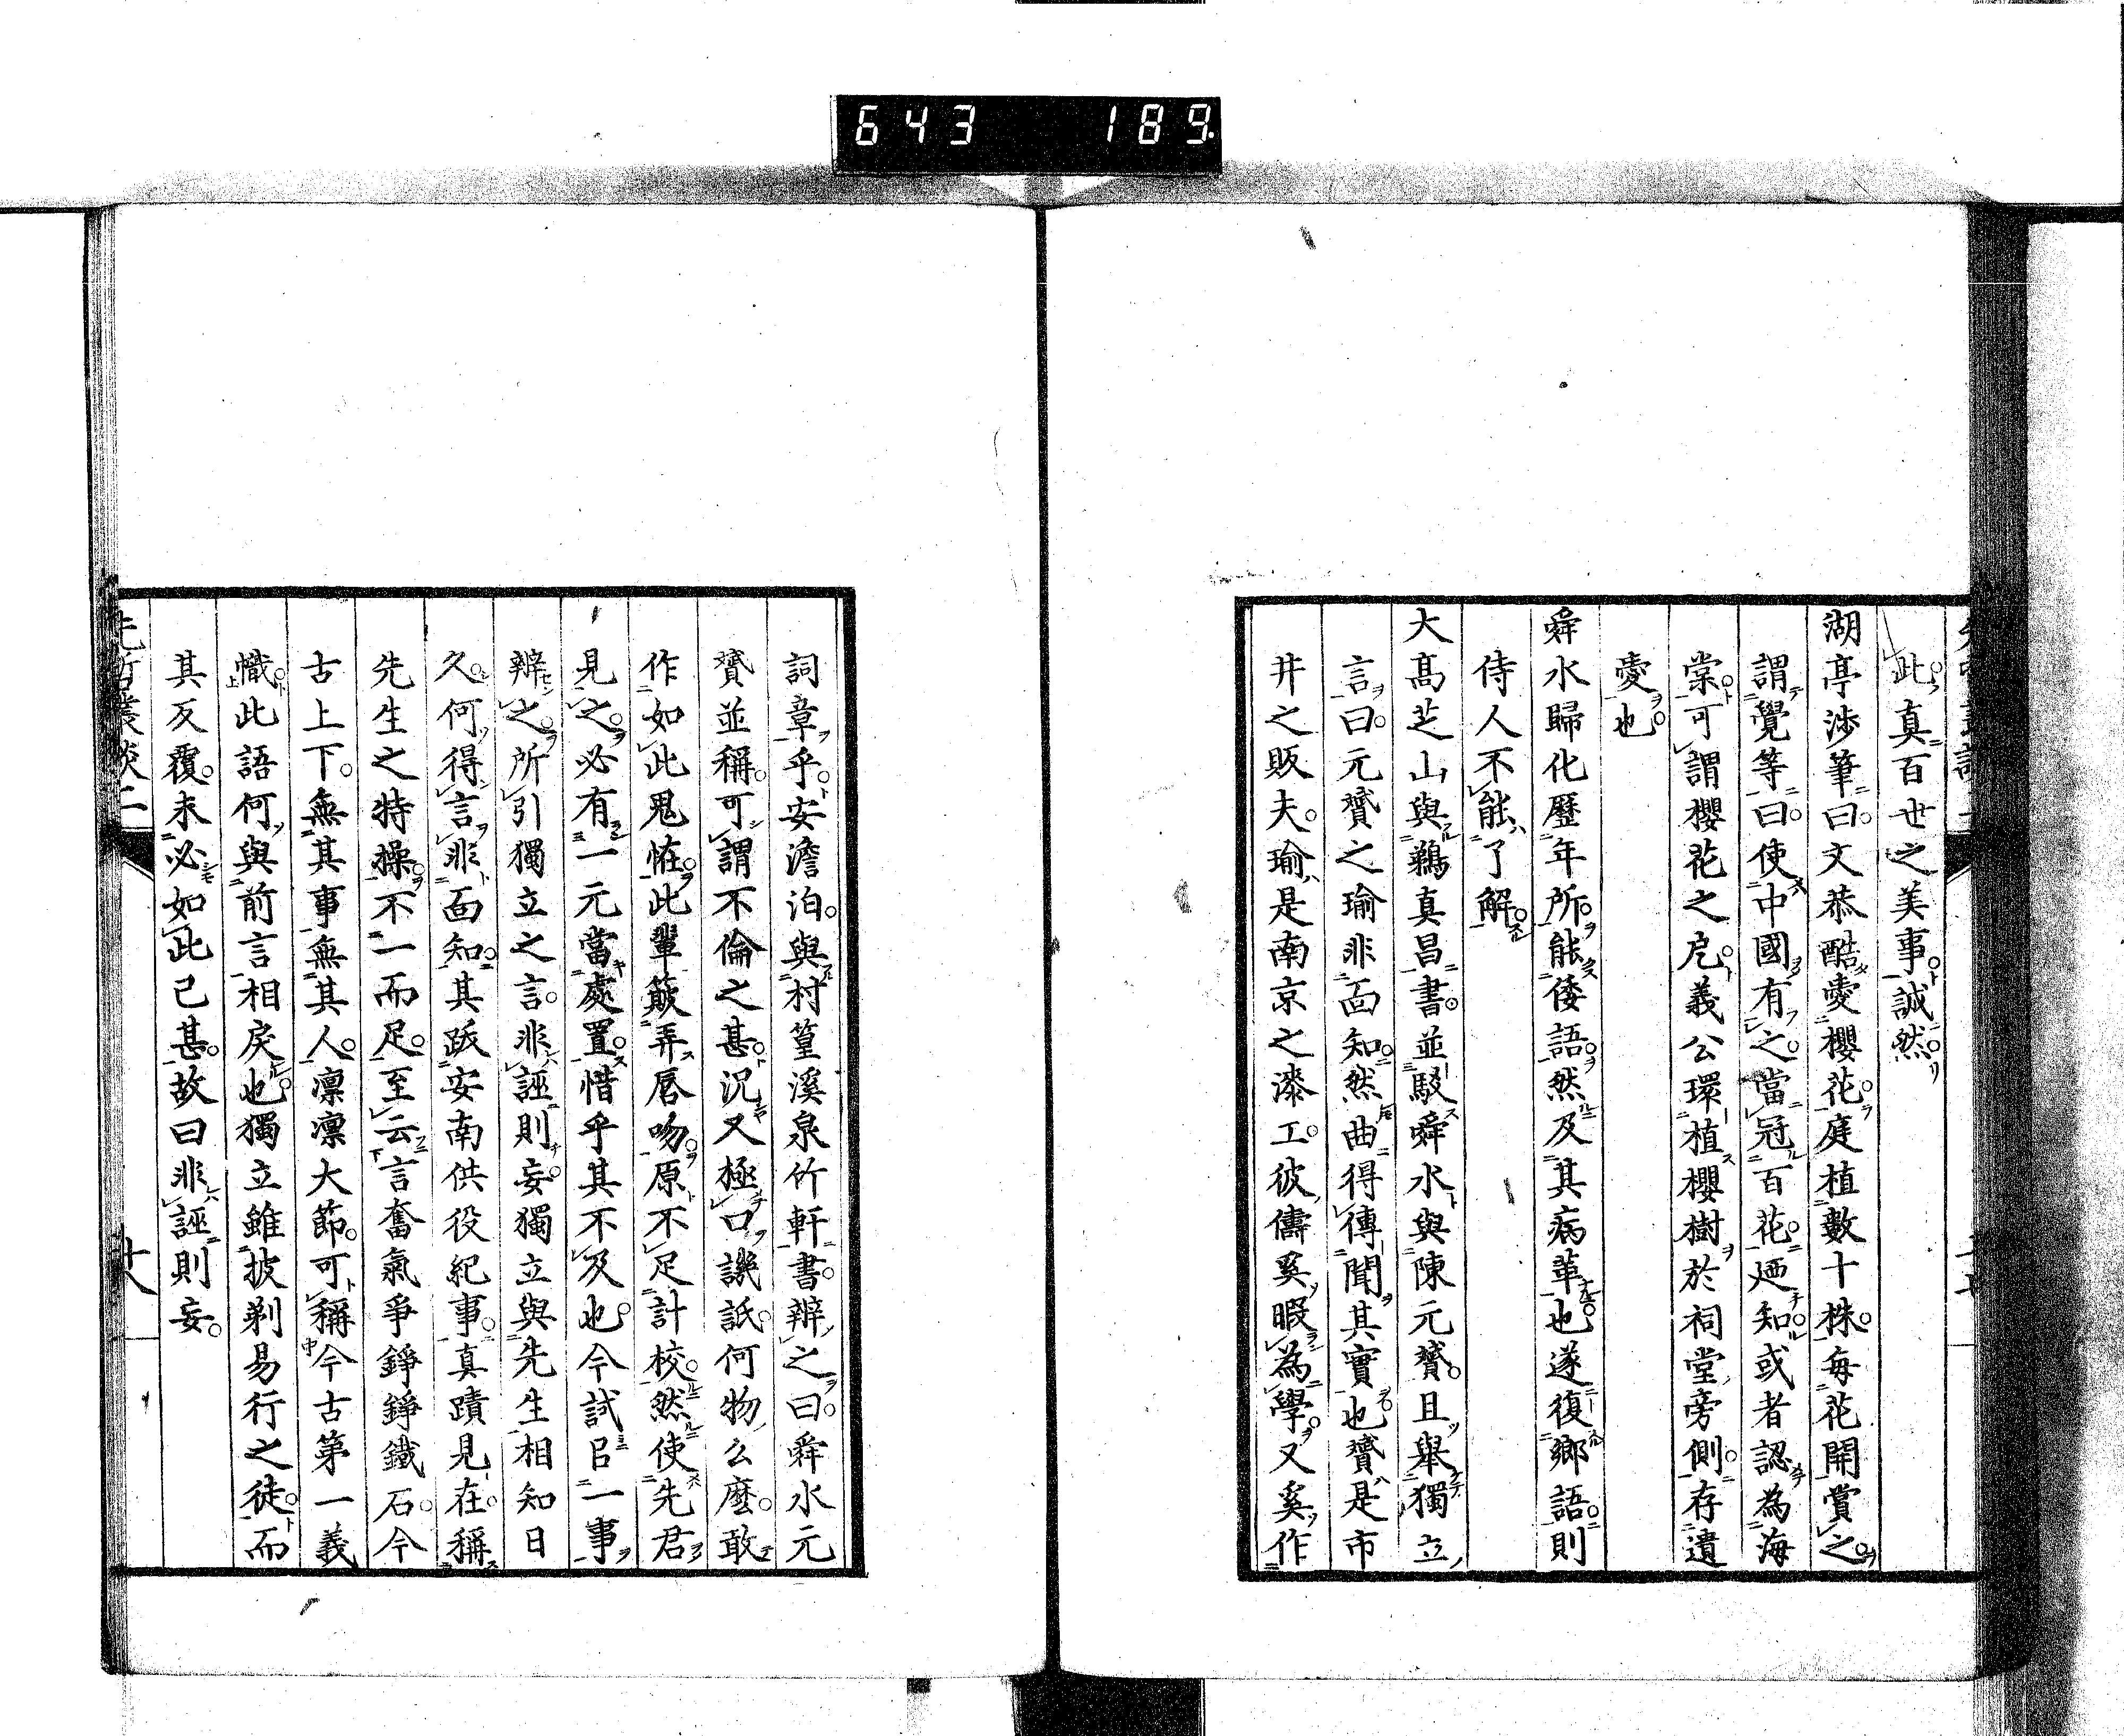 643 189.
此真百世之美事誠然
湖亭渉筆曰文恭酷愛櫻花庭植數十株毎花開賞之
謂覺等曰使中國有之當冠百花廼知或者認為海
棠可謂櫻花之戹義公環植櫻樹於祠堂旁側存遺
愛也
舜水歸化歷年所能倭語然及其病革也遂復鄉語則
侍人不能了解
大髙芝山與鵜真昌書並駁舜水與陳元贇且舉獨立
言曰元贇之瑜非面知然曲得傳聞其實也贇是市
井之販夫瑜是南京之漆工彼儔奚暇為學又奚作
詞章乎安澹泊與村篁溪泉竹軒書辨之曰舜水元
贇並稱可謂不倫之甚況又極口譏詆何物么麼敢
作如此鬼恠此輩簸弄唇吻原不足計校然使先君
見之必有一元當處置惜乎其不及也今試㠯一事
辨之所引獨立之言非誣則妄獨立與先生相知日
久何得言非面知其跋安南供役紀事真蹟見在稱
先生之特操不一而足至云言奮氣爭錚錚鐵石今
古上下無其事無其人凛凛大節可稱今古第一義
幟此語何與前言相戾也獨立雖披剃易行之徒而
其反覆未必如此已甚故曰非誣則妄
先哲叢談二
十八